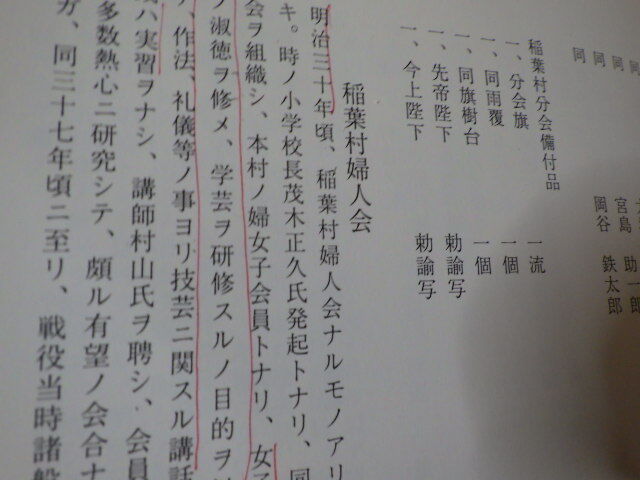 同
同
同
同 宮島 助一郎
岡谷 鉄太郎
稲葉村分会備付品
一、分会旗 一流
一、同雨覆 一個
一、同旗樹台 一個
一、先帝陛下 勅諭写
一、今上陛下 勅諭写
稲葉村婦人会
明治三十年頃、稲葉村婦人会ナルモノアリ
キ。時ノ小学校長茂木正久氏発起トナリ、同
会ヲ組織シ、本村ノ婦女子会員トナリ、女子
ノ淑徳ヲ修メ、学芸ヲ研修スルノ目的ヲ
、作法、礼儀等ノ事ヨリ技芸ニ関スル講話
ハ実習ヲナシ、講師村山氏ヲ聘シ、会員
多数熱心ニ研究シテ、頗ル有望ノ会合ナ
ガ、同三十七年頃ニ至リ、戦役当時諸般